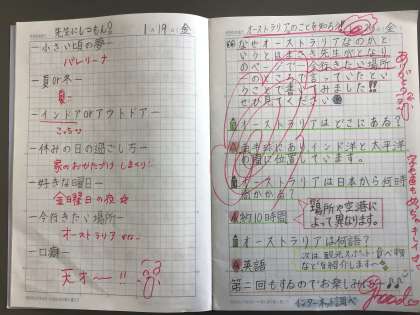 先生にしつもん? 1月19日(金)
ー小さい頃の夢ー
バレリーナ
ー夏or冬ー
夏
ーインドアorアウトドアー
こっち
ー休みの日の過ごし方ー
家のおかたづけ
ー好きな曜日ー
金曜日の夜☆
ー今行きたい場所ー
オーストラリア
ー口癖ー
天才〜!!
オーストラリアのことを知ろう
なぜオーストラリアなのかと
いうと
先生がとなり
のページで、今行きたい場所
のところで言っていたとい
うことで書いてみました!!
ぜひ見てください
オーストラリアはどこにある?
南半球にありインド洋と太平洋
の間に位置しています。
オーストラリアは日本から何時間
かかる?
約10時間
場所や空港に
よって異なります。
オーストラリアは何語?
英語
次は観光スポット・食べ物
などを紹介します〜
第二回もするのでお楽しみに♪
インターネット調べ
ありがとう
good